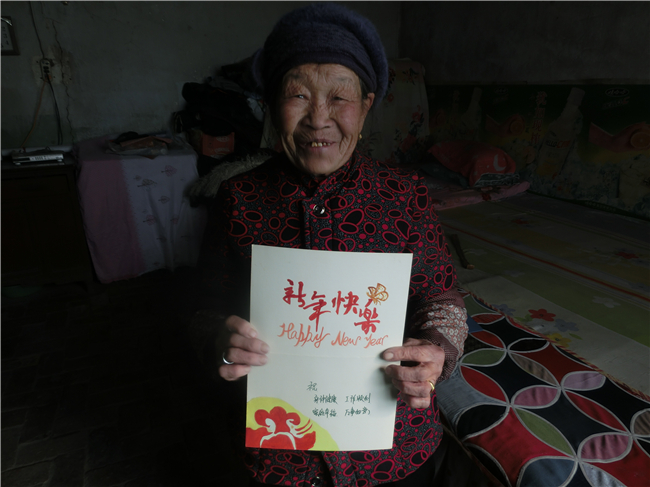 新年快樂
Happy New Year
祝
身体健康 工作顺利
家庭幸福 万事如意